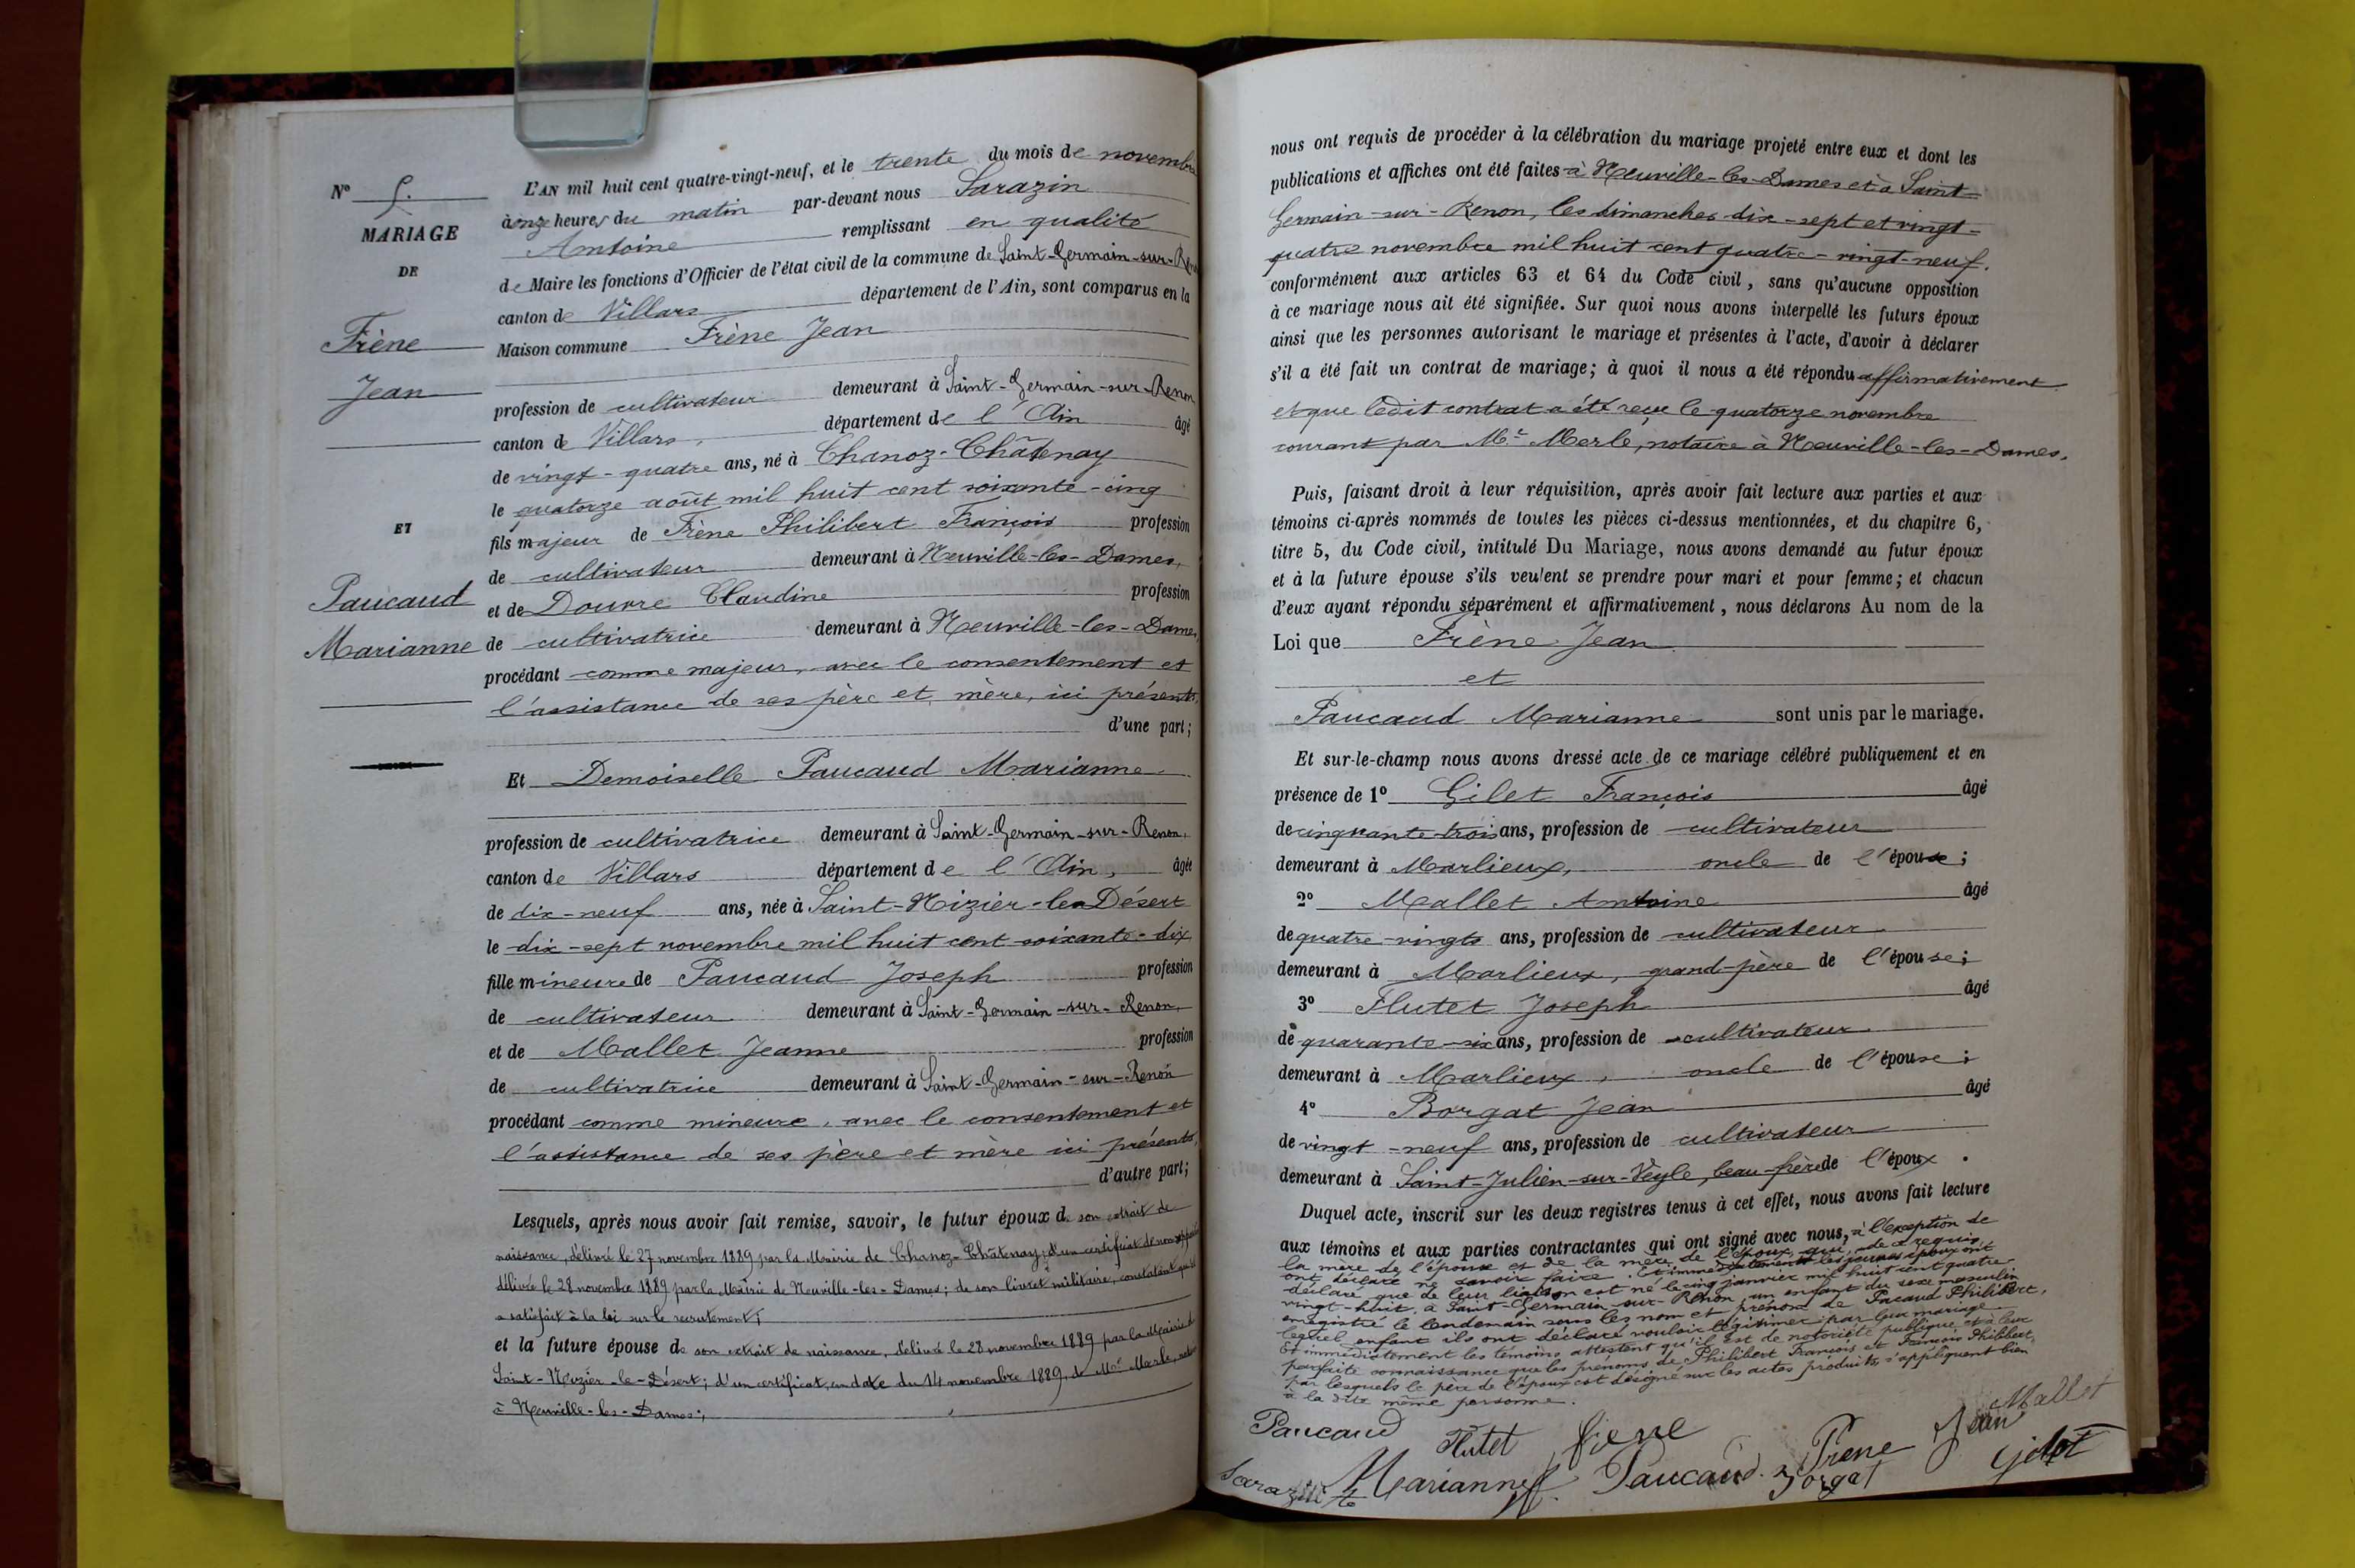 N° 5.
MARIAGE
DE
Frène
Jean
ET
Paucaud
Marianne
L'AN mil huit cent quatre-vingt-neuf, et le trente du mois de novembre
à onze heures du matin par-devant nous Sarazin
Antoine remplissant en qualité
de Maire les fonctions d'Officier de l'état civil de la commune de Saint-Germain-sur-Renon
canton de Villars département de l'Ain, sont comparus en la
Maison commune Frène Jean
profession de cultivateur demeurant à Saint-Germain-sur-Renon
canton de Villars, département de l'Ain âgé
de vingt-quatre ans, né à Chanoz-Châtenay
le quatorze août mil huit cent soixante-cinq
fils majeur de Frène Philibert François profession
de cultivateur demeurant à Neuville-les-Dames,
et de Douvre Claudine profession
de cultivatrice demeurant à Neuville-les-Dames,
procédant comme majeur, avec le consentement et
l'assistance de ses père et mère, ici présents,
d'une part;
Et Demoiselle Paucaud Marianne
profession de cultivatrice demeurant à Saint-Germain-sur-Renon,
canton de Villars département de l'Ain, âgée
de dix-neuf ans, née à Saint-Nizier-le-Désert
le dix-sept novembre mil huit cent soixante-dix
fille mineure de Paucaud Joseph profession
de cultivateur demeurant à Saint-Germain-sur-Renon,
et de Mallet Jeanne profession
de cultivatrice demeurant à Saint-Germain-sur-Renon
procédant comme mineure, avec le consentement et
l'assistance de ses père et mère ici présents,
d'autre part;
Lesquels, après nous avoir fait remise, savoir, le futur époux de son extrait de
naissance, délivré le 27 novembre 1889 par la Mairie de Chanoz-Châtenay; d'un certificat de non opposition
délivré le 28 novembre 1889 par la Mairie de Neuville-les-Dames; de son livret militaire, constatant qu'il
a satisfait à la loi sur le recrutement;
et la future épouse de son extrait de naissance, délivré le 28 novembre 1889 par la Mairie de
Saint-Nizier-le-Désert; d'un certificat, en date du 14 novembre 1889, de Me Merle, notaire
à Neuville-les-Dames;
nous ont requis de procéder à la célébration du mariage projeté entre eux et dont les
publications et affiches ont été faites à Neuville-les-Dames et à Saint-
Germain-sur-Renon, les dimanches dix-sept et vingt-
quatre novembre mil huit cent quatre-vingt-neuf.
conformément aux articles 63 et 64 du Code civil, sans qu'aucune opposition
à ce mariage nous ait été signifiée. Sur quoi nous avons interpellé les futurs époux
ainsi que les personnes autorisant le mariage et présentes à l'acte, d'avoir à déclarer
s'il a été fait un contrat de mariage; à quoi il nous a été répondu affirmativement
et que ledit contrat a été reçu le quatorze novembre
courant par Me Merle, notaire à Neuville-les-Dames.
Puis, faisant droit à leur réquisition, après avoir fait lecture aux parties et aux
témoins ci-après nommés de toutes les pièces ci-dessus mentionnées, et du chapitre 6,
titre 5, du Code civil, intitulé Du Mariage, nous avons demandé au futur époux
et à la future épouse s'ils veulent se prendre pour mari et pour femme; et chacun
d'eux ayant répondu séparément et affirmativement, nous déclarons Au nom de la
Loi que Frène Jean
et
Paucaud Marianne sont unis par le mariage.
Et sur-le-champ nous avons dressé acte de ce mariage célébré publiquement et en
présence de 1° Gilet François âgé
de cinquante-trois ans, profession de cultivateur
demeurant à Marlieux, oncle de l'épouse;
2° Mallet Antoine âgé
de quatre-vingts ans, profession de cultivateur
demeurant à Marlieux, grand-père de l'épouse;
3° Flutet Joseph âgé
de quarante-six ans, profession de cultivateur
demeurant à Marlieux, oncle de l'épouse;
4° Borgat Jean âgé
de vingt-neuf ans, profession de cultivateur
demeurant à Saint-Julien-sur-Veyle, beau-frère de l'époux.
Duquel acte, inscrit sur les deux registres tenus à cet effet, nous avons fait lecture
aux témoins et aux parties contractantes qui ont signé avec nous, à l'exception de
la mère de l'épouse et de la mère de l'époux, qui, de ce requis,
ont déclaré ne savoir faire. Et immédiatement les jeunes époux ont
déclaré que de leur liaison est né le cinq janvier mil huit cent quatre-
vingt-huit, à Saint-Germain-sur-Renon, un enfant du sexe masculin
enregistré le lendemain sous les nom et prénom de Pacaud Philibert,
lequel enfant ils ont déclaré vouloir légitimer par leur mariage.
Et immédiatement les témoins attestent qu'il est de notoriété publique et à leur
parfaite connaissance que les prénoms de Philibert François et François Philibert,
par lesquels le père de l'époux est désigné sur les actes produits, s'appliquent bien
à la dite même personne.
Mallet
Paucaud Flutet frene Frene Jean
Sarazin Marianne Paucaud Borgat Gilet